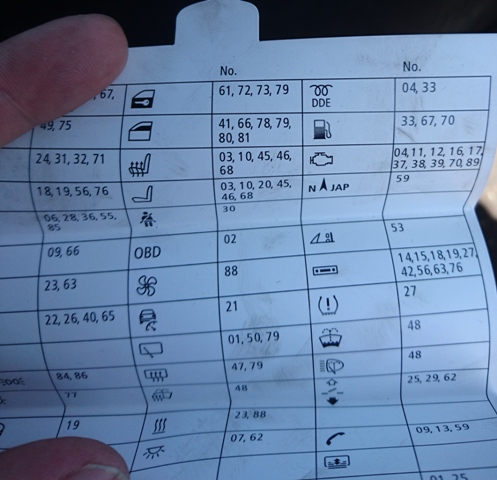 No. No.
67, 61, 72, 73, 79 DDE 04, 33
49, 75 41, 66, 78, 79,
80, 81 33, 67, 70
24, 31, 32, 71 03, 10, 45, 46,
68 04, 11, 12, 16, 17,
37, 38, 39, 70, 89
18, 19, 56, 76 03, 10, 20, 45,
46, 68 N JAP 59
06, 28, 36, 55,
85 30
09, 66 OBD 02 53
23, 63 88 14,15,18,19,27,
42,56,63,76
22, 26, 40, 65 21 27
01, 50, 79 48
84, 86 47, 79 48
77 48 25, 29, 62
19 23, 88
07, 62 09, 13, 59
01, 25